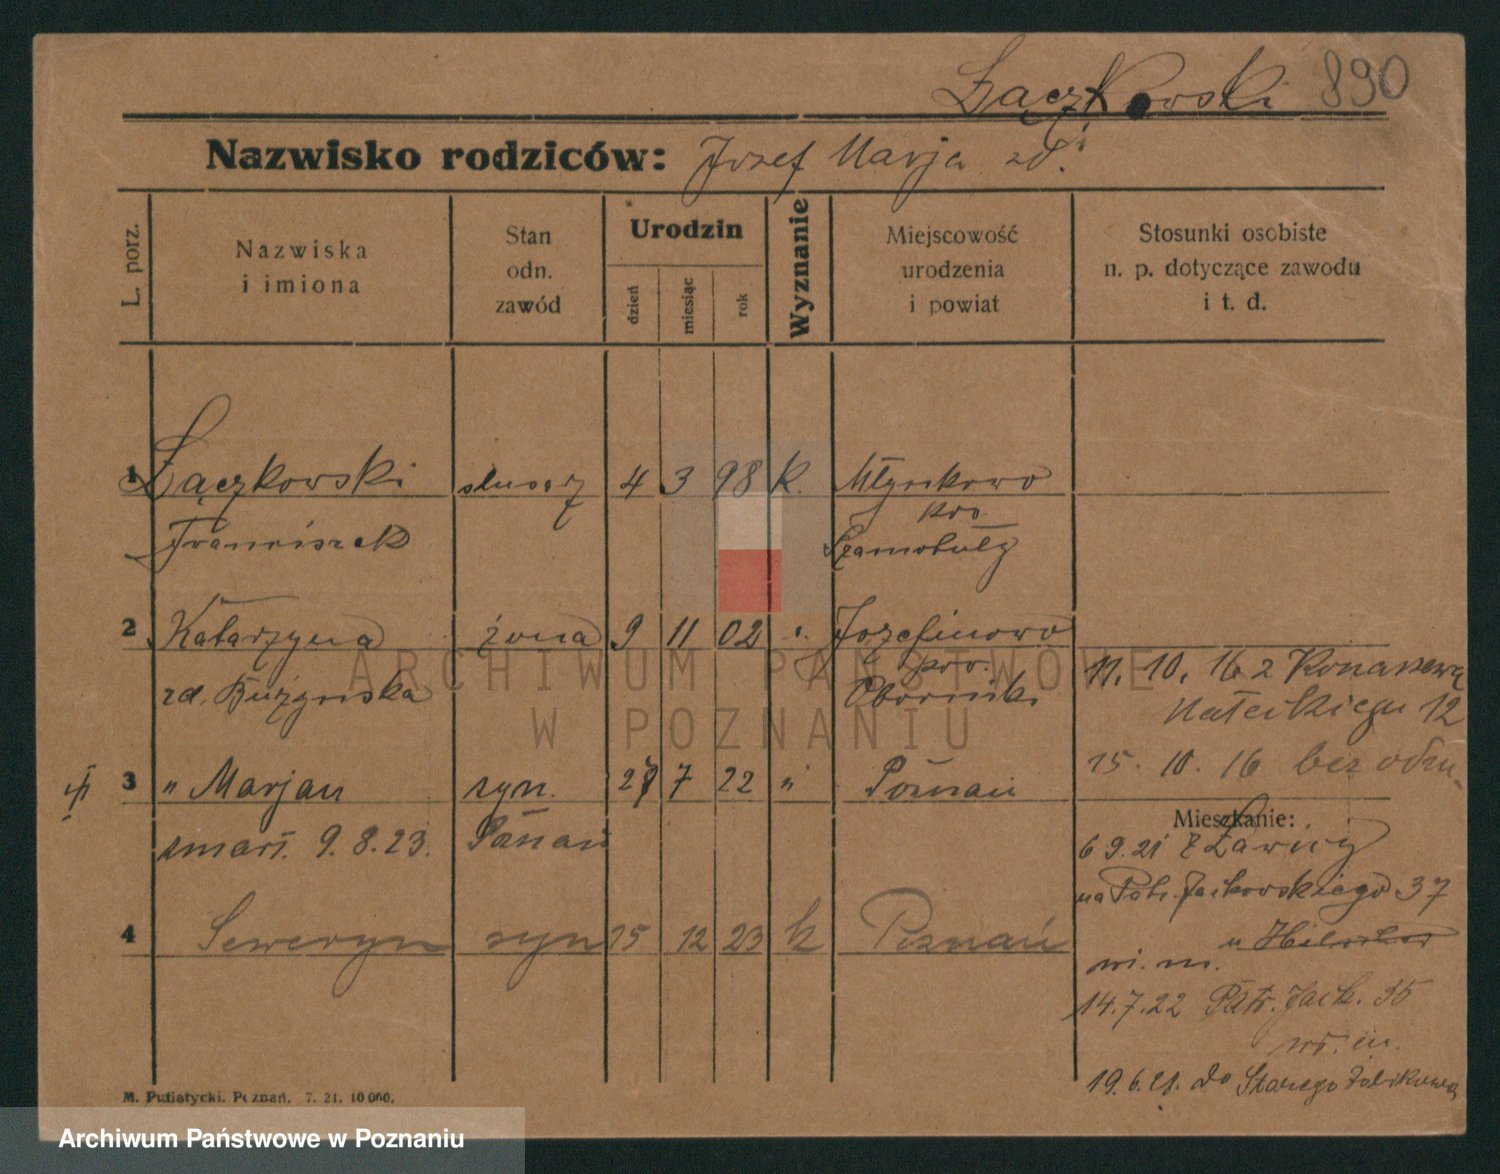 Łączkowski 890
Nazwisko rodziców: Józef Marja zd.
L. porz.
Nazwiska
i imiona
Stan
odn.
zawód
Urodzin
dzień
miesiąc
rok
Wyznanie
Miejscowość
urodzenia
i powiat
Stosunki osobiste
n. p. dotyczące zawodu
i t. d.
1 Łączkowski ślusarz 4 3 98 k. Młynkowo
pow.
Franciszek Szamotuły
2 Katarzyna żona 9 11 02 " Józefinowo
pow.
zd. Oborniki
11. 10. 16 z
12
15. 10. 16 bez
3 " Marjan syn. 27 7 22 " Poznań
zmarł. 9.8.23. Poznań
Mieszkanie:
6 9.21 z Ławicy
na Patr. Jackowskiego 37
u
wi. m.
4 Seweryn syn 15 12 23 k Poznań
14.7.22 Patr. Jack. 35
wi. m.
19.6.21. do Starego
M. Putiatycki, Poznań. 7. 21. 10 000.
ARCHIWUM PAŃSTWOWE
W POZNANIU
Archiwum Państwowe w Poznaniu